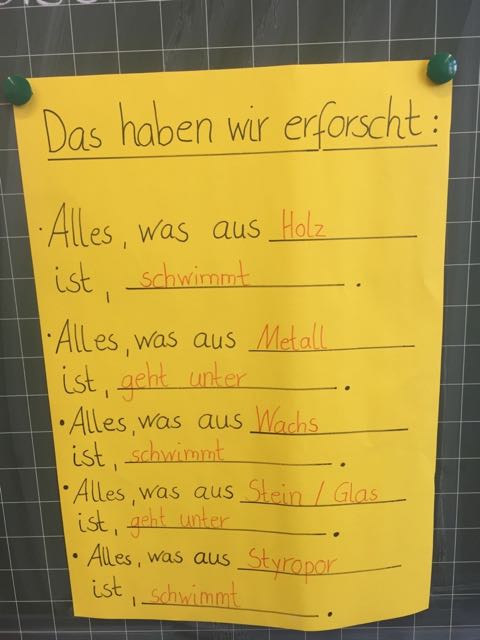 Das haben wir erforscht:
· Alles, was aus Holz
ist, schwimmt.
· Alles, was aus Metall
ist, geht unter.
· Alles, was aus Wachs
ist, schwimmt.
· Alles, was aus Stein / Glas
ist, geht unter.
· Alles, was aus Styropor
ist, schwimmt.